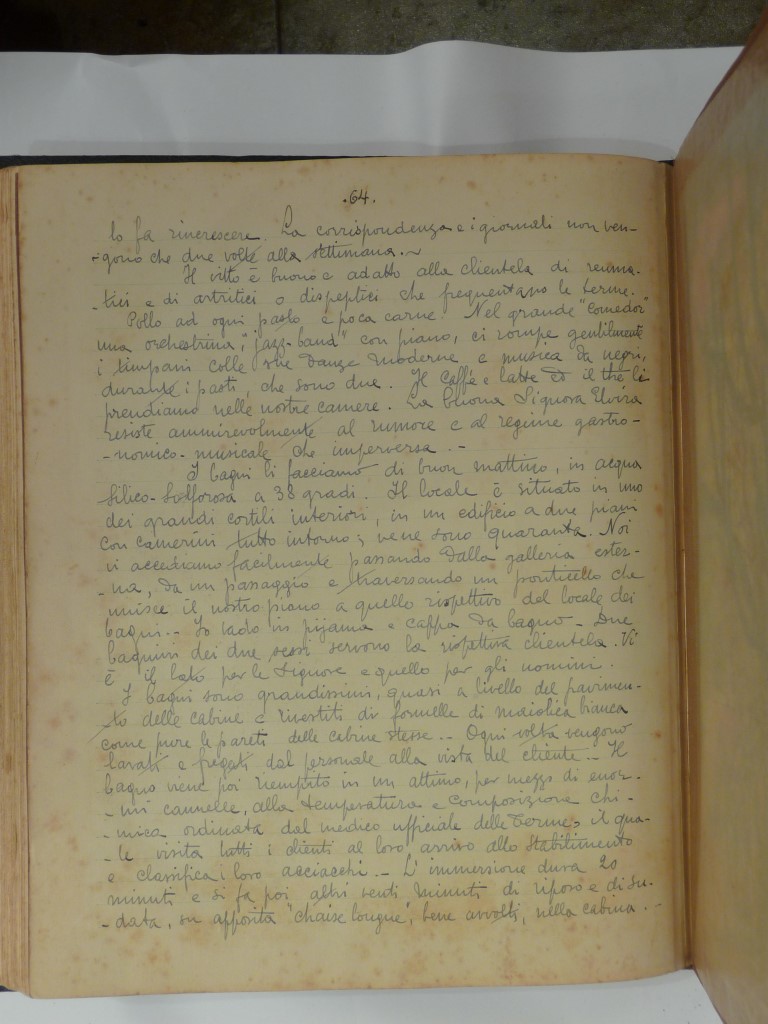 .64.
lo fa rincrescere. La corrispondenza e i giornali non ven-
-gono che due volte alla settimana.~
Il vitto è buono e adatto alla clientela di reuma-
-tici e di artritici o dispeptici che frequentano le terme.
Pollo ad ogni pasto e poca carne. Nel grande "comedor"
una orchestrina, "jazz-band" con piano, ci rompe gentilmente
i timpani colle sue danze moderne e musica da negri,
durante i pasti, che sono due. Il caffè e latte ed il thè li
prendiamo nelle nostre camere. La buona Signora Elvira
resiste ammirevolmente al rumore e al regime gastro-
-nomico-musicale che imperversa. -
I bagni li facciamo di buon mattino, in acqua
silico-solforosa a 38 gradi. Il locale è situato in uno
dei grandi cortili interiori, in un edificio a due piani
con camerini tutto intorno; ve ne sono quaranta. Noi
vi accediamo facilmente passando dalla galleria ester-
-na, da un passaggio e traversando un ponticello che
unisce il nostro piano a quello rispettivo del locale dei
bagni.- Io vado in pijama e cappa da bagno - Due
baquini dei due sessi servono la rispettiva clientela. Vi
è il lato per le Signore e quello per gli uomini.
I bagni sono grandissimi, quasi a livello del pavimen-
-to delle cabine e rivestiti di formelle di maiolica bianca
come pure le pareti delle cabine stesse.- Ogni volta vengono
lavati e fregati dal personale alla vista del cliente.- Il
bagno viene poi riempito in un attimo, per mezzo di enor-
-mi cannelle, alla temperatura e composizione chi-
-mica ordinata dal medico ufficiale delle Terme, il qua-
-le visita tutti i clienti al loro arrivo allo Stabilimento
e classifica i loro acciacchi.- L'immersione dura 20
minuti e si fa poi altri venti minuti di riposo e di su-
-data, su apposita "chaise longue", bene avvolti, nella cabina. -